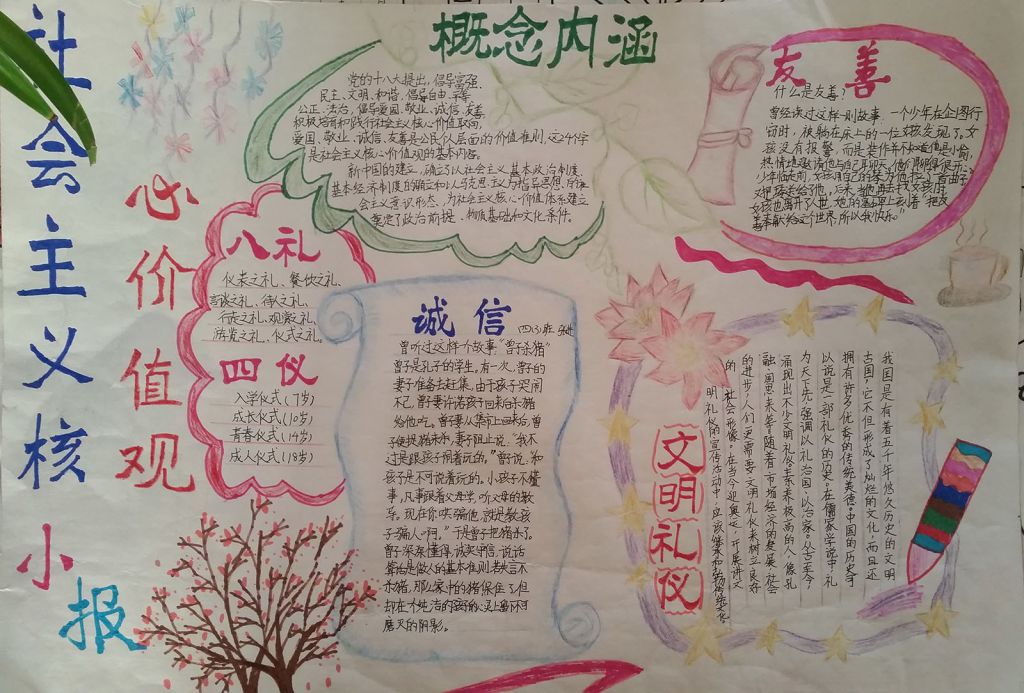 社会主义核
心价值观
小报
概念内涵
党的十八大提出，倡导富强、
民主、文明、和谐，倡导自由、平等、
公正、法治，倡导爱国、敬业、诚信、友善，
积极培育和践行社会主义核心价值取向，
爱国、敬业、诚信、友善是公民个人层面的价值准则，这24个字
是社会主义核心价值观的基本内容。
新中国的建立，确立了以社会主义基本政治制度、
基本经济制度的确立和以马克思主义为指导思想
会主义意识形态，为社会主义核心价值体系建立
奠定了政治前提、物质基础和文化条件。
友善
什么是友善？
曾经读过这样一则故事，一个少年在企图行
窃时，被躺在床上的一位女孩发现了。女
孩没有报警，而是装作并不知道他是小偷，
热情地邀请他与自己聊天，他们聊得很开
八礼
仪表之礼、餐饮之礼、
言谈之礼、待人之礼、
行走之礼、观赏之礼、
游览之礼、仪式之礼。
四仪
入学仪式(7岁)
成长仪式(10岁)
青春仪式(14岁)
成人仪式(18岁)
诚信
四(3)班
曾听过这样个故事“曾子杀猪”
曾子是孔子的学生。有一次，曾子的
妻子准备去赶集，由于孩子哭闹
不已，曾子妻许诺孩子回来后杀猪
给他吃。曾子妻从集市上回来后，曾
子便捉猪来杀，妻子阻止说：“我不
过是跟孩子闹着玩的。”曾子说：和
孩子是不可说着玩的。小孩子不懂
事，凡事跟着父母学，听父母的教
导。现在你哄骗他，就是教孩
子骗人啊。”于是曾子把猪杀了。
曾子深深懂得，诚实守信，说话
算话是做人的基本准则，若失言不
杀猪，那么家中的猪保住了，但
却在个纯洁的孩子的心灵上留下不可
磨灭的阴影。
文明礼仪
我国是有着五千年悠久历史的文明
古国，它不但形成了灿烂的文化，而且还
拥有许多优秀的传统美德。中国的历史可
以说是一部礼仪的历史。在儒家学说中，礼
为天下先，强调以礼治国，以治家。从古至今，
涌现出不少文明礼仪素来极高的人，像孔
融、周恩来等。随着市场经济的发展，社会
的进步，人们更需要文明礼仪来树立良好
的社会形象。在当今迎奥运，开展讲文
明礼仪的宣传活动中，应该继承和弘扬传统文化